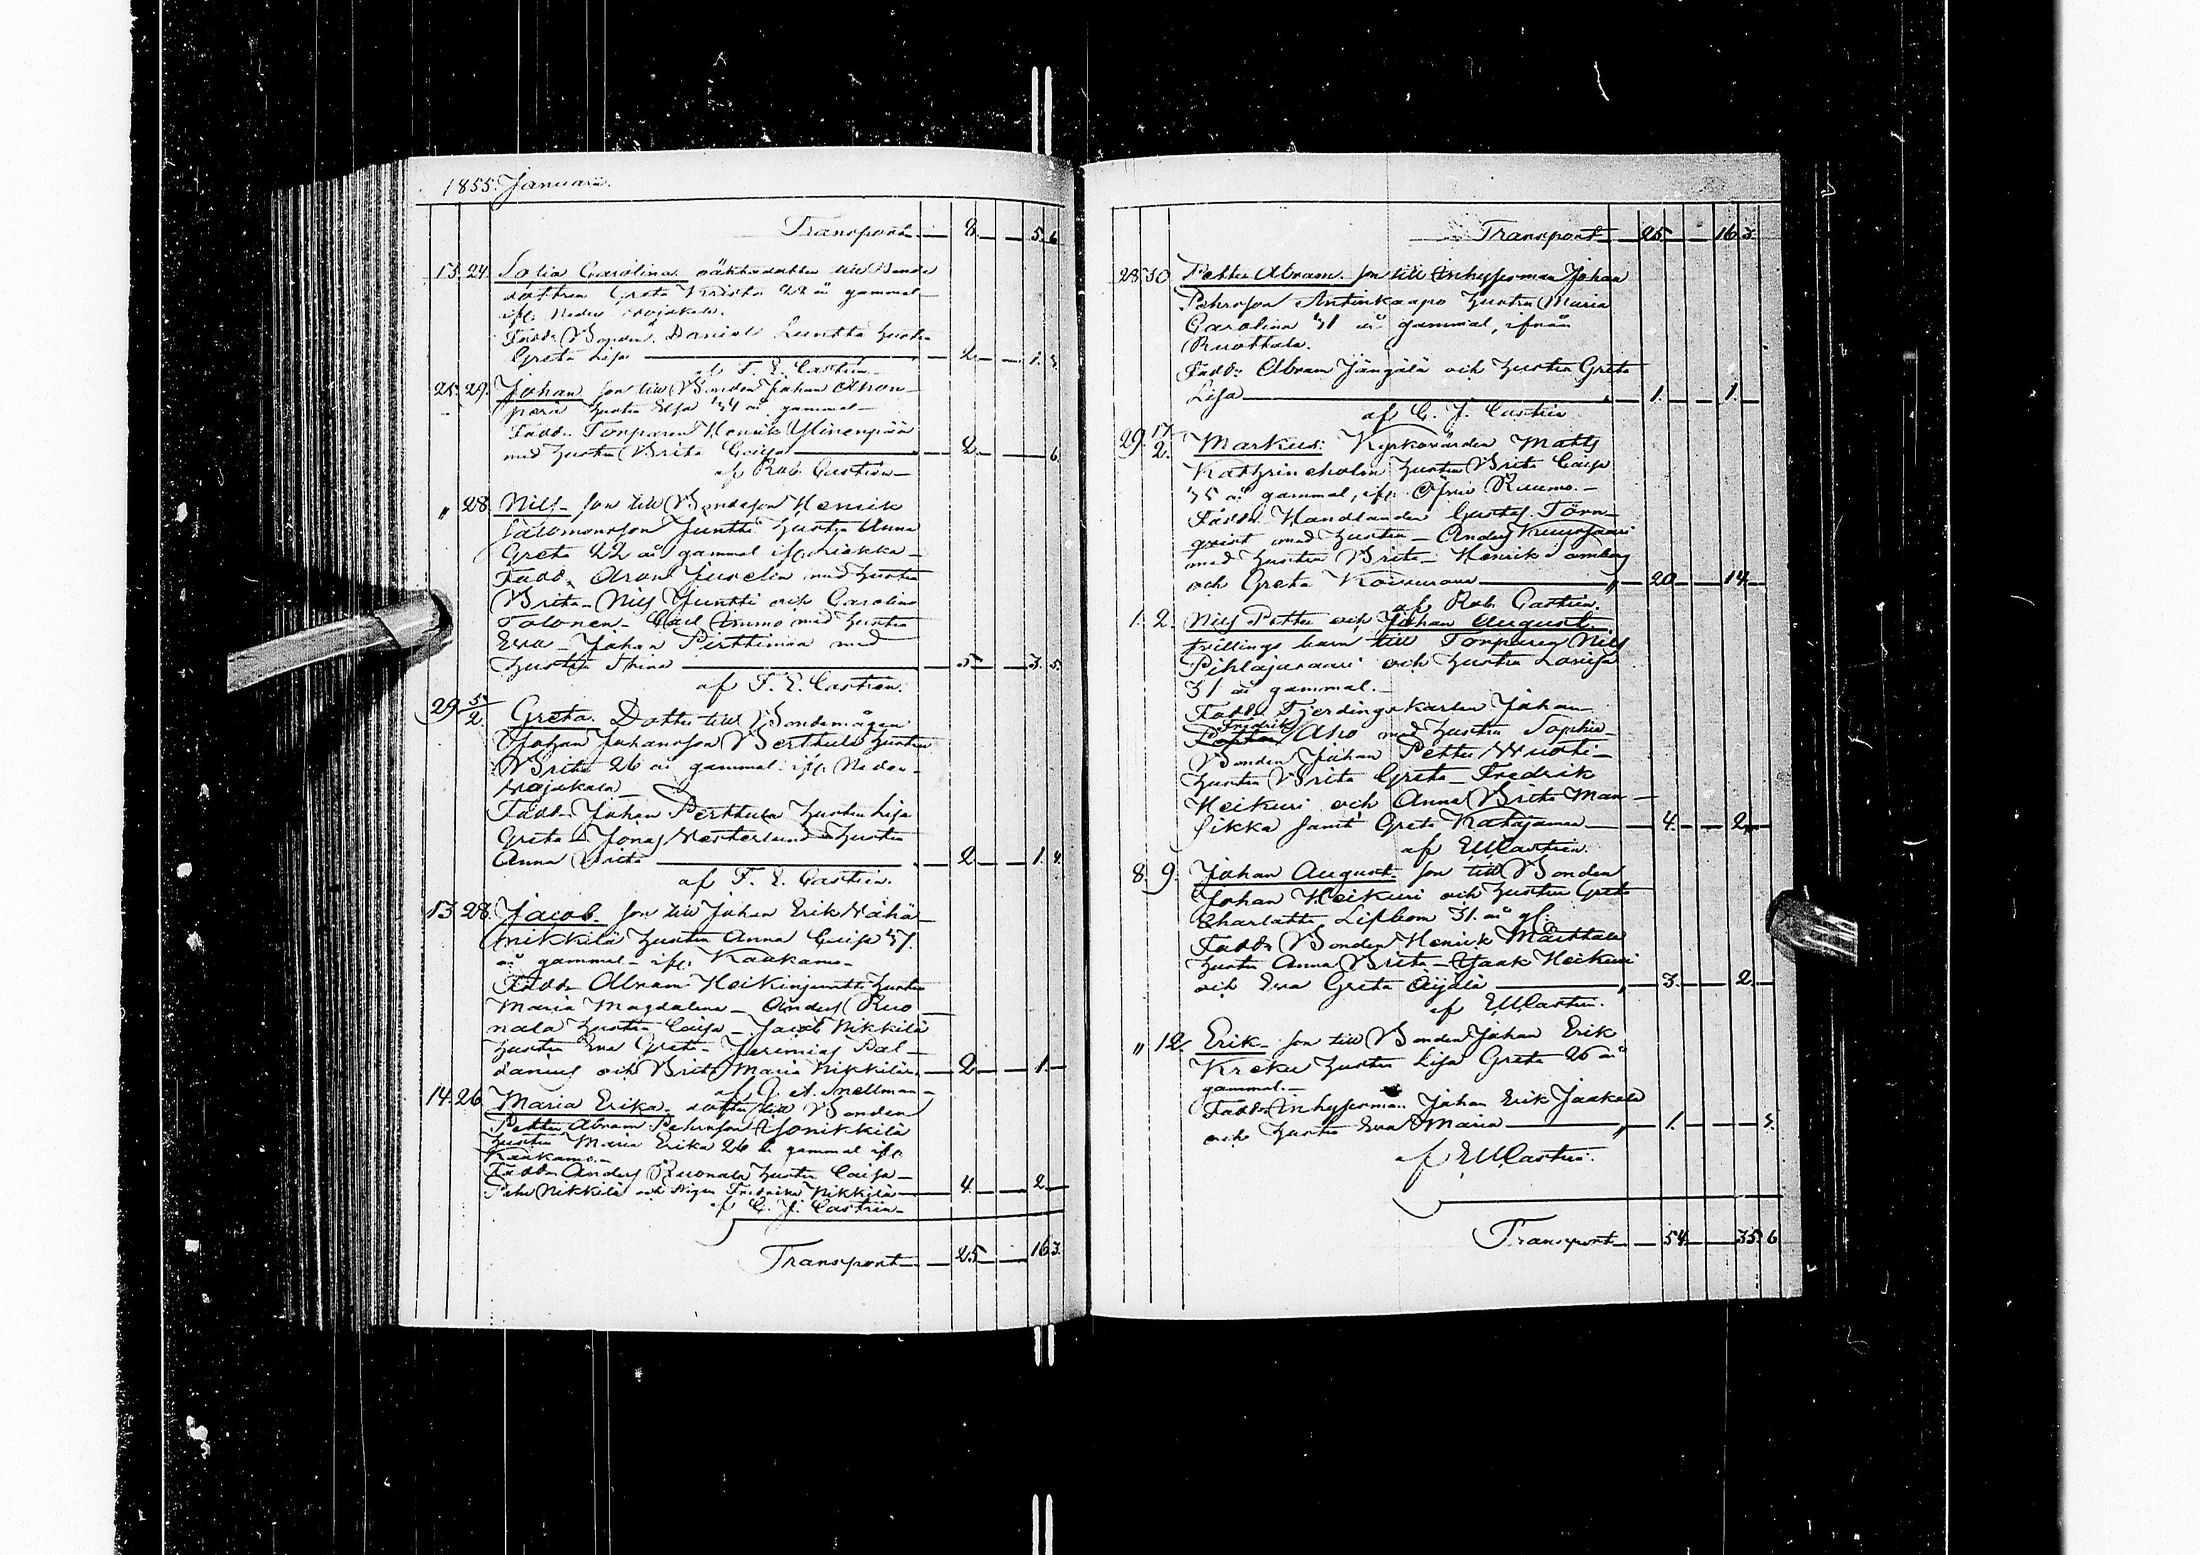 1855. Januarii.
Transport 8. 5. 6.
13. 24. Sofia Carolina oäkta dotter till Bonde
dottren Greta Krista 22 år gammal
ifr. Neder Wojakala.
Fadd. Bonden Daniel Luntta hustru
Greta Lisa 2. 1. 3.
af F. E. Castrén.
25. 29. Johan son till Bonden Johan
hustru Elsa 34 år gammal
Fadd. Torparen Henrik
med hustru Brita Caisa 2. 6.
af Rob. Castrén
" 28 Nils son till Bondeson Henrik
Salomonsson Juntti hustru Anna
Greta 22 år gammal ifr.
Fadd. Aron Juselin med hustru
Brita Nils Juntti och Carolina
Tolonen Carl med hustru
Eva Johan Pirttimaa med
hustru Stina 5 3. 5.
af F. E. Castrén.
29 5/2. Greta. Dotter till Bondemågen
Johan Johansson Berthula hustru
Brita 26 år gammal ifr. Neder
Wojakala
Fadd. Johan Perttula hustru Lisa
Greta Jonas Westerlund hustru
Anna Brita 2 1. 9.
af F. E. Castrén.
13 28. Jacob. son till Johan Erik Wähä
nikkilä hustru Anna Caisa 37.
år gammal ifr. Kaakamo
Fadd. Abram Heikinjuntti hustru
Maria Magdalena Anders Ruo
nala hustru Caisa Jacob Nikkilä
hustru Eva Greta Jeremias Pal
danius och Brita Maria Nikkilä 2 1.
af J. A. Snellman
14. 26. Maria Erika. dotter till Bonden
Petter Abram Pehrsson Yonikkilä
hustru Maria Erika 26 år gammal ifr.
Kaakamo
Fadd. Anders Ruonala hustru Caisa
Pehr Nikkilä och Pigan Fredrika Nikkilä 4. 2.
af C. J. Castrén
Transport 25 16 3.
Transport 25 16 3.
28 30 Petter Abram. son till Inhysesman Johan
Pehrsson Antinkaapo hustru Maria
Carolina 31 år gammal, ifrån
Ruottala.
Fadd. Abram Jängälä och hustru Greta
Lisa 1. 1.
af C. J. Castrén
29. 17/2. Markus. Kyrkovärden Matts
Kathrineholm hustru Brita Caisa
35 år gammal, ifr. Öfre Raumo.
Fadd. Handlanden Gustaf Törn
qvist med hustru Anders
med hustru Brita Henrik Lamberg
och Greta 20 14
af Rob. Castrén.
1. 2. Nils Petter och Johan August.
tvillinge barn till Torparen Nils
Pihlajavaari och hustru Lovisa
31 år gammal.
Fadd. Fjerdingskarlen Johan
Fredrik Aho med hustru Sophia
Bonden Johan Petter Wuoti
hustru Brita Greta Fredrik
Heikuri och Anna Brita Man
sikka samt Greta Katajamaa 4. 2.
af EWCastrén.
8. 9. Johan August. son till Bonden
Johan Heikuri och hustru Greta
Charlotta Lifbom 31. år gl.
Fadd. Bonden Henrik Marttala
hustru Anna Brita Isaak Heikuri
och Eva Greta Äijälä 3. 2.
af EWCastrén.
" 12. Erik son till Bonden Johan Erik
Kreku hustru Lisa Greta 26 år
gammal.
Fadd. Inhysesman Johan Erik Jaakola
och hustru Eva Maria 1. 3.
af EWCastrén.
Transport 54. 35. 6